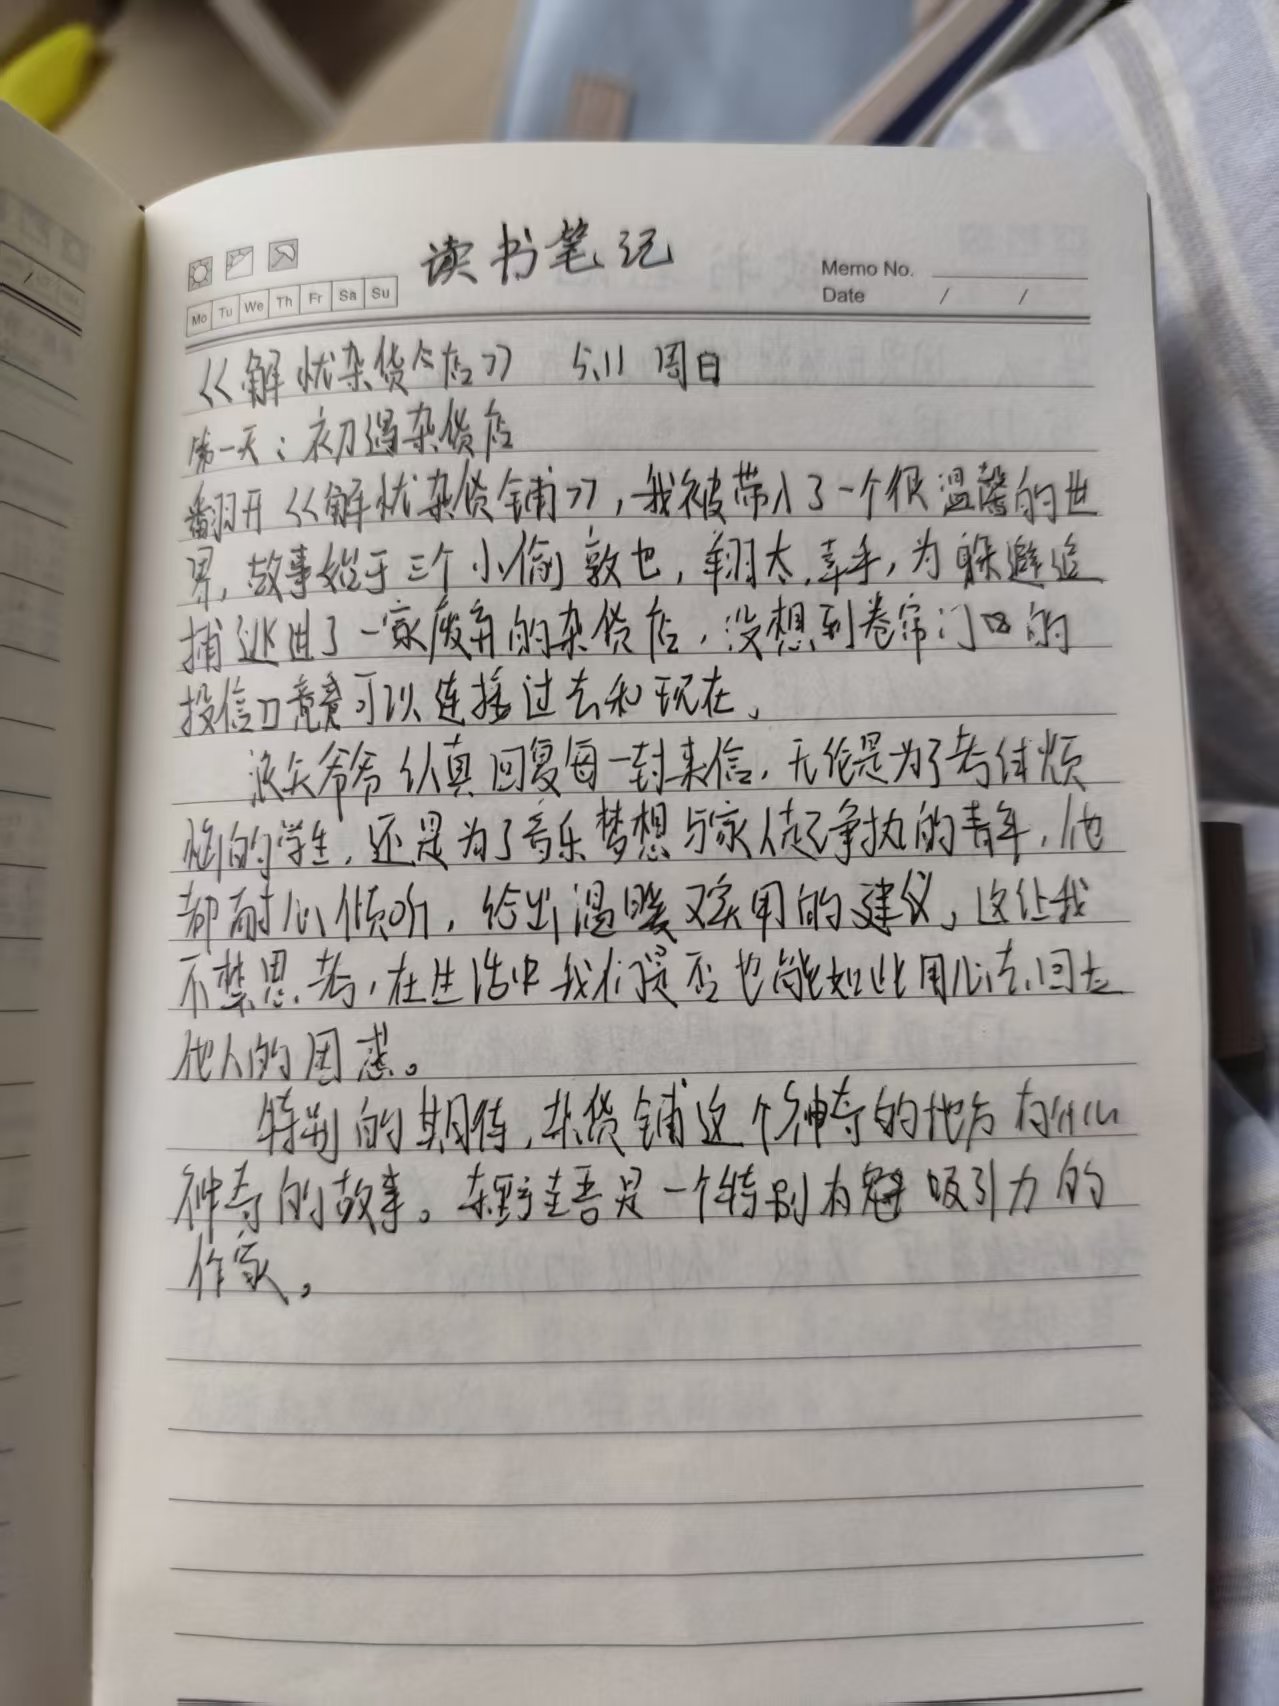 读书笔记
Memo No.
Mo Tu We Th Fr Sa Su
Date / /
《解忧杂货店》 5.11 周日
第一天：初遇杂货店
翻开《解忧杂货铺》，我被带入了一个很温馨的世
界，故事始于三个小偷敦也，翔太，幸手，为躲避追
捕逃进了一家废弃的杂货店，没想到卷帘门口的
投信口竟可以连接过去和现在。
浪矢爷爷认真回复每一封来信，无论是为了考试烦
恼的学生，还是为了音乐梦想与家人起争执的青年，他
都耐心倾听，给出温暖又实用的建议，这让我
不禁思考，在生活中我们是否也能如此用心去回应
他人的困惑。
特别的期待，杂货铺这个神奇的地方有什么
神奇的故事。东野圭吾是一个特别有 吸引力的
作家。